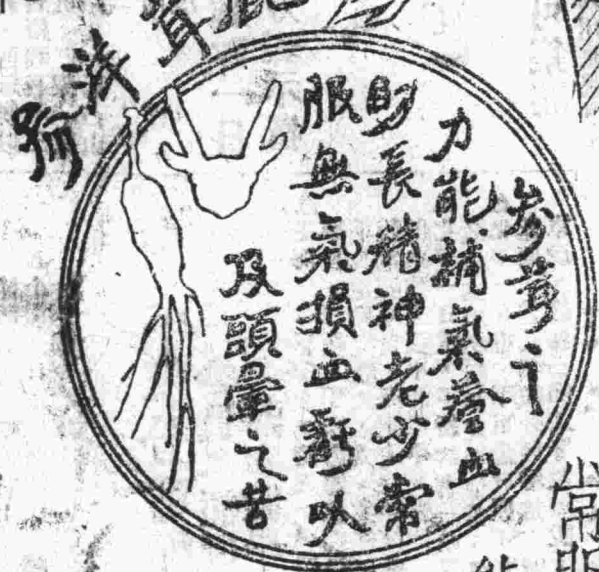 鹿茸洋參
參茸之
力能補氣養血
助長精神老少常
服無氣損血虧以
及頭暈之苦
常服
能